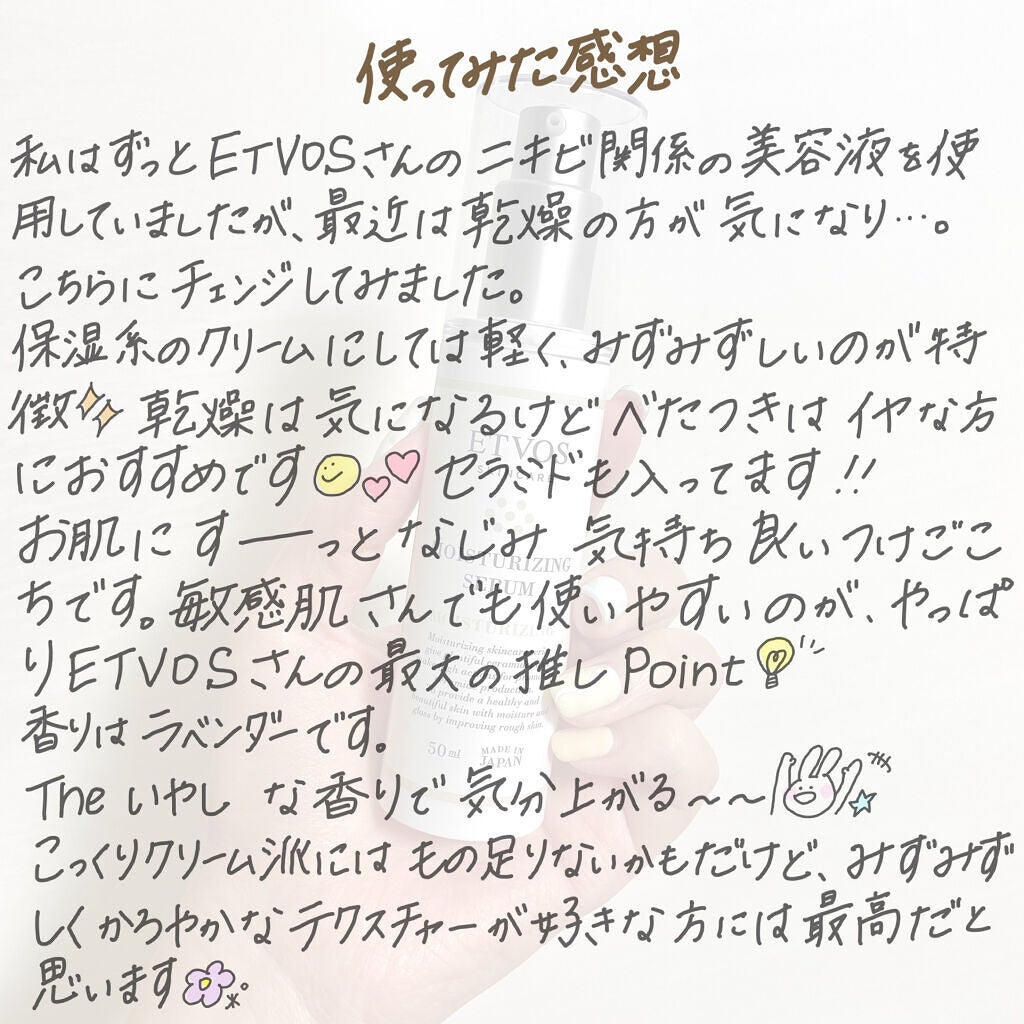 使ってみた感想
私はずっとETVOSさんのニキビ関係の美容液を使
用していましたが、最近は乾燥の方が気になり…。
こちらにチェンジしてみました。
保湿系のクリームにしては軽く、みずみずしいのが特
徴 乾燥は気になるけどべたつきはイヤな方
におすすめです セラミドも入ってます!!
お肌にすーっとなじみ気持ち良いつけごこ
ちです。敏感肌さんでも使いやすいのが、やっぱ
りETVOSさんの最大の推しPoint
香りはラベンダーです。
Theいやしな香りで気分上がる~~
こっくりクリーム派にはもの足りないかもだけど、みずみず
しくかろやかなテクスチャーが好きな方には最高だと
思います
ETVOS
SKINCARE
MOISTURIZING
SERUM
MOISTURIZING
Moisturizing skincare
beautiful skin with moisture and
gloss by improving rough skin.
50ml
MADE IN
JAPAN